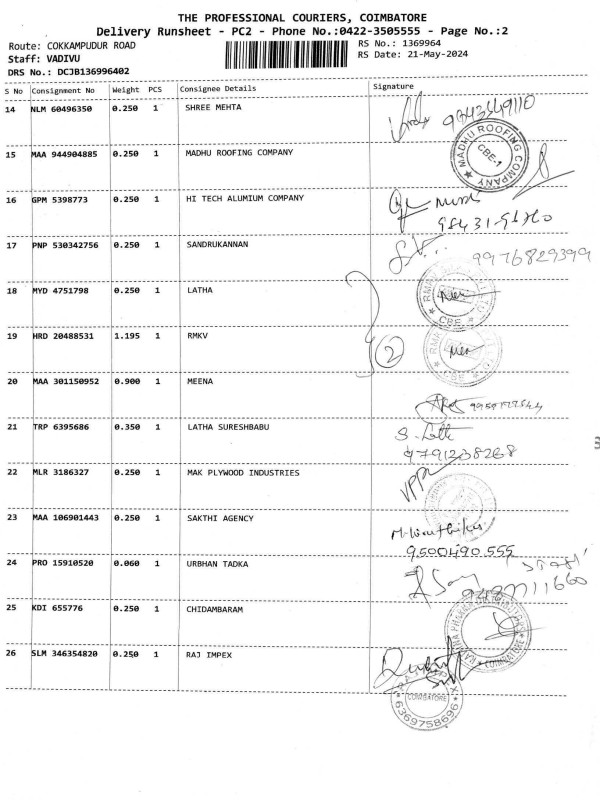 THE PROFESSIONAL COURIERS, COIMBATORE
Delivery Runsheet - PC2 - Phone No.:0422-3505555 - Page No.:2
Route: COKKAMPUDUR ROAD
RS No.: 1369964
Staff: VADIVU
RS Date: 21-May-2024
DRS No.: DCJB136996402
S No Consignment No Weight PCS Consignee Details Signature
14 NLM 60496350 0.250 1 SHREE MEHTA
15 MAA 944904885 0.250 1 MADHU ROOFING COMPANY
MADHU ROOFING COMPANY
CBE-1
16 GPM 5398773 0.250 1 HI TECH ALUMIUM COMPANY
17 PNP 530342756 0.250 1 SANDRUKANNAN
9976829399
18 MYD 4751798 0.250 1 LATHA
CBE
19 HRD 20488531 1.195 1 RMKV
2
CBE
20 MAA 301150952 0.900 1 MEENA
21 TRP 6395686 0.350 1 LATHA SURESHBABU
9791238268
22 MLR 3186327 0.250 1 MAK PLYWOOD INDUSTRIES
23 MAA 106901443 0.250 1 SAKTHI AGENCY
9500490555
24 PRO 15910520 0.060 1 URBHAN TADKA
25 KDI 655776 0.250 1 CHIDAMBARAM
COIMBATORE
26 SLM 346354820 0.250 1 RAJ IMPEX
COIMBATORE
6369758696